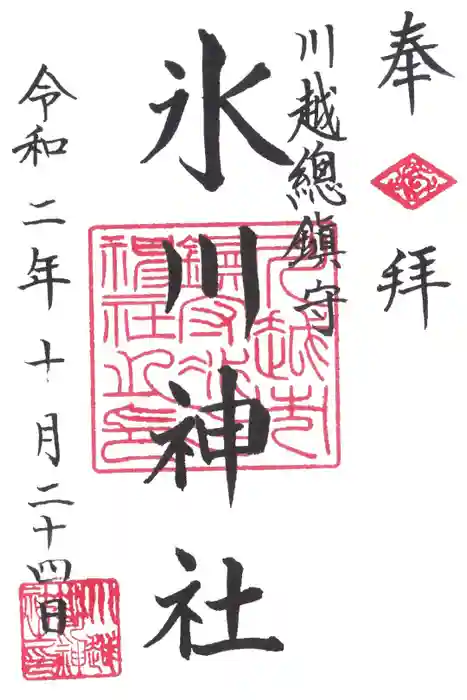 奉拝
川越總鎮守
氷川神社
令和二年十月二十四日